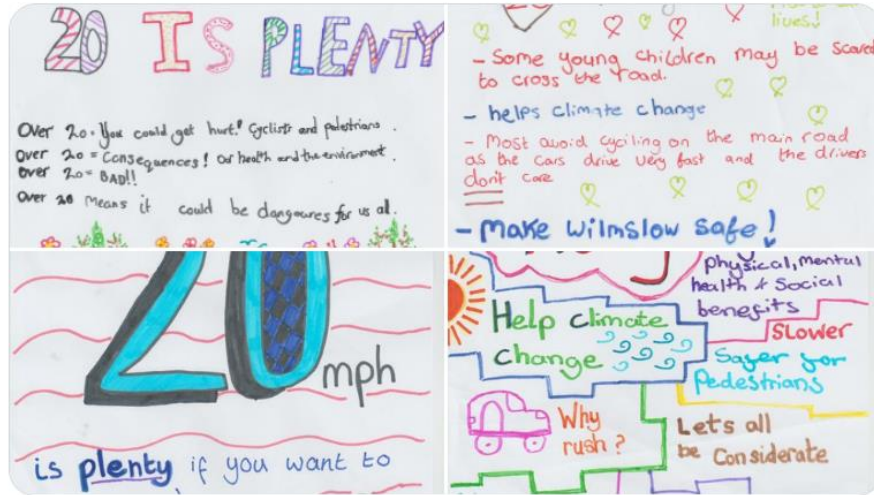 20 IS PLENTY
Over 20 = You could get hurt! Cyclists and pedestrians.
Over 20 = Consequences! Our health and the environment.
Over 20 = BAD!!
Over 20 means it could be dangoures for us all.
lives!
- Some young children may be scared
to cross the road.
- helps climate change
- Most avoid cyciling on the main road
as the cars drive very fast and the drivers
don't care
- Make Wilmslow safe!
20
mph
is plenty if you want to
physical, mental
health & Social
benefits
Help climate
change
SLOWER
Safer for
Pedestrians
Why
rush?
Lets all
be Considerate